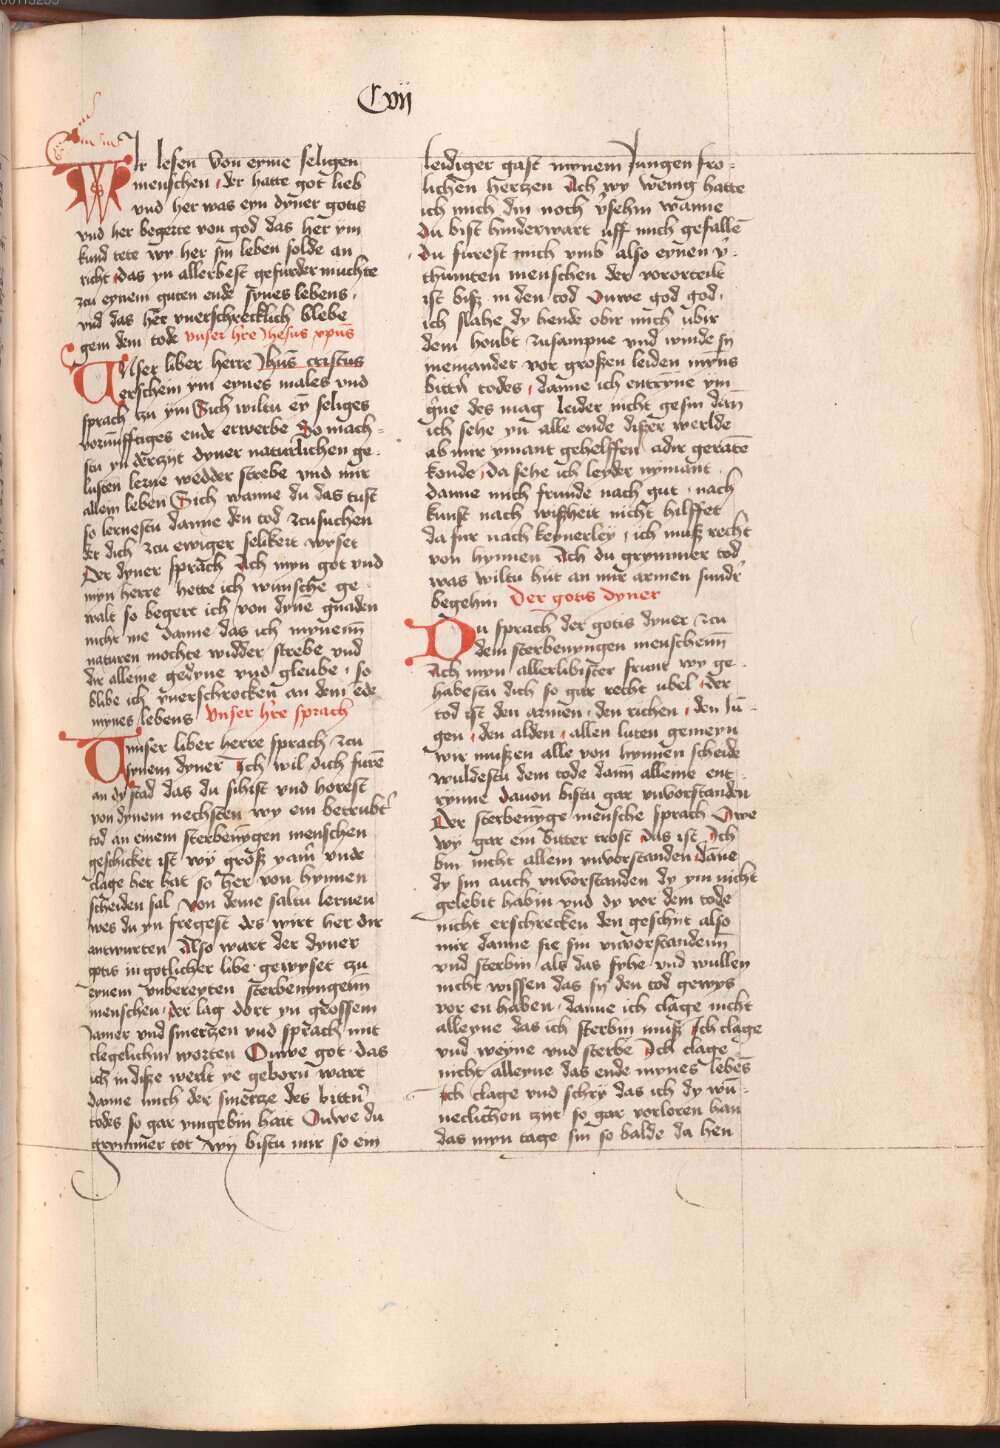 Cvij
Wir lesen von eyme seligen
menschen der hatte got lieb
vnd her was eyn dyner gotis
vnd her begerte von god das her ym
kund tete wy her sin leben solde an
richt das yn allerbest gefurder muchte
zcu eynem guten ende synes lebens
vnd das her vnerschrecklich blebe
gem dem tode vnser h're Jhesus xpūs
Vnser liber herre Jhūs cristus
erschein ym eynes males vnd
sprach tzu ym Sich wiltu ey seliges
vornūfftiges ende erwerbe So mach-
stu yn derzyt dyner naturlichen ge-
lusten lerne wedder strebe vnd mir
allem leben Sich wanne du das tust
so lernestu danne den tod zcusuchen
der dich zcu ewiger selikeit wyset
Der dyner sprach Ach myn got vnd
myn herre hette ich wunsche ge-
walt so begert ich von dyne gnaden
nicht me danne das ich mynem
naturen mochte widder strebe vnd
dir alleine gedyne vnd gleube so
blibe ich vnerschrocken an dem ēde
mynes lebens Vnser h're sprach
Vnnser liber herre sprach zcu
synem dyner Ich wil dich furē
an dy stad das du sihist vnd horest
von dynem nechsten wy ein betrubt'
tod an einem sterbenyngen menschen
geschicket ist wy groß yam' vnde
clage her hat so her von hynnen
scheiden sal Von deme saltu lernen
wes du yn fregest des wirt her dir
antwurten Also wart der dyner
gotis in gotlicher libe gewyset tzu
eynem vnbereyten sterbenyngenn
menschen der lag dort yn grossem
Jamer vnd smertzen vnd sprach mit
clegelichin worten Ouwe got das
ich in diße werlt ye geborn wart
danne mich der smertze des bittn'
todes so gar vmgebin hait Ouwe du
grymmer tot wy bistu mir so ein
leidiger gast mynem Jungen fro-
lichen hertzen Ach wy wenig hatte
ich mich din noch v'sehin wanne
du bist hinderwart uff mich gefallē
du furest mich vmb also eynen v'-
thumten menschen der vororteilt
ist biß in den tod Ouwe god god
ich slahe dy hende obir mich ubir
dem houbt zusampne vnd winde sy
niemander vor großen leiden myns
bittn' todes danne ich entrynne ym
g'ne des mag leider nicht gesin dan
ich sehe yn alle ende dißer werlde
ab mir ymant gehelffen adir geratē
konde da sehe ich leyder nymant
danne mich frunde nach gut nach
kunst nach wißheit nicht hilffet
da fur nach keynerley ich muß recht
von hynnen Ach du grymmer tod
was wiltu hut an mir armen sundr'
begehin Der gotis dyner
Du sprach der gotis dyner zcu
dem sterbenyngen menschenn
Ach myn allerlibister frunt wy ge-
habestu dich so gar recht ubel der
tod ist den armen den richen den Jū-
gen den alden allen luten gemeyn
wir mußen alle von hynnen scheide
wuldestu dem tode dann alleine ent-
rynne dauon bistu gar vnvorstanden
Der sterbenynge mensche sprach Owe
wy gar ein bitter trost das ist Ich
bin nicht allein vnvorstanden dāne
dy sin auch vnvorstanden dy ym nicht
gelebit habin vnd dy vor dem tode
nicht erschrecken den geschit also
mir danne sie sin vnvorstandenn
vnd sterbin als das fyhe vnd wullen
nicht wissen das sy den tod gewys
vor en haben danne ich clage nicht
alleyne das ich sterbin muß Ich clage
vnd weyne vnd sterbe Ich clage
nicht alleyne das ende mynes lebēs
Ich clage vnd schry das ich dy wū-
neclichen zyt so gar vorloren han
das myn tage sin so balde da hen